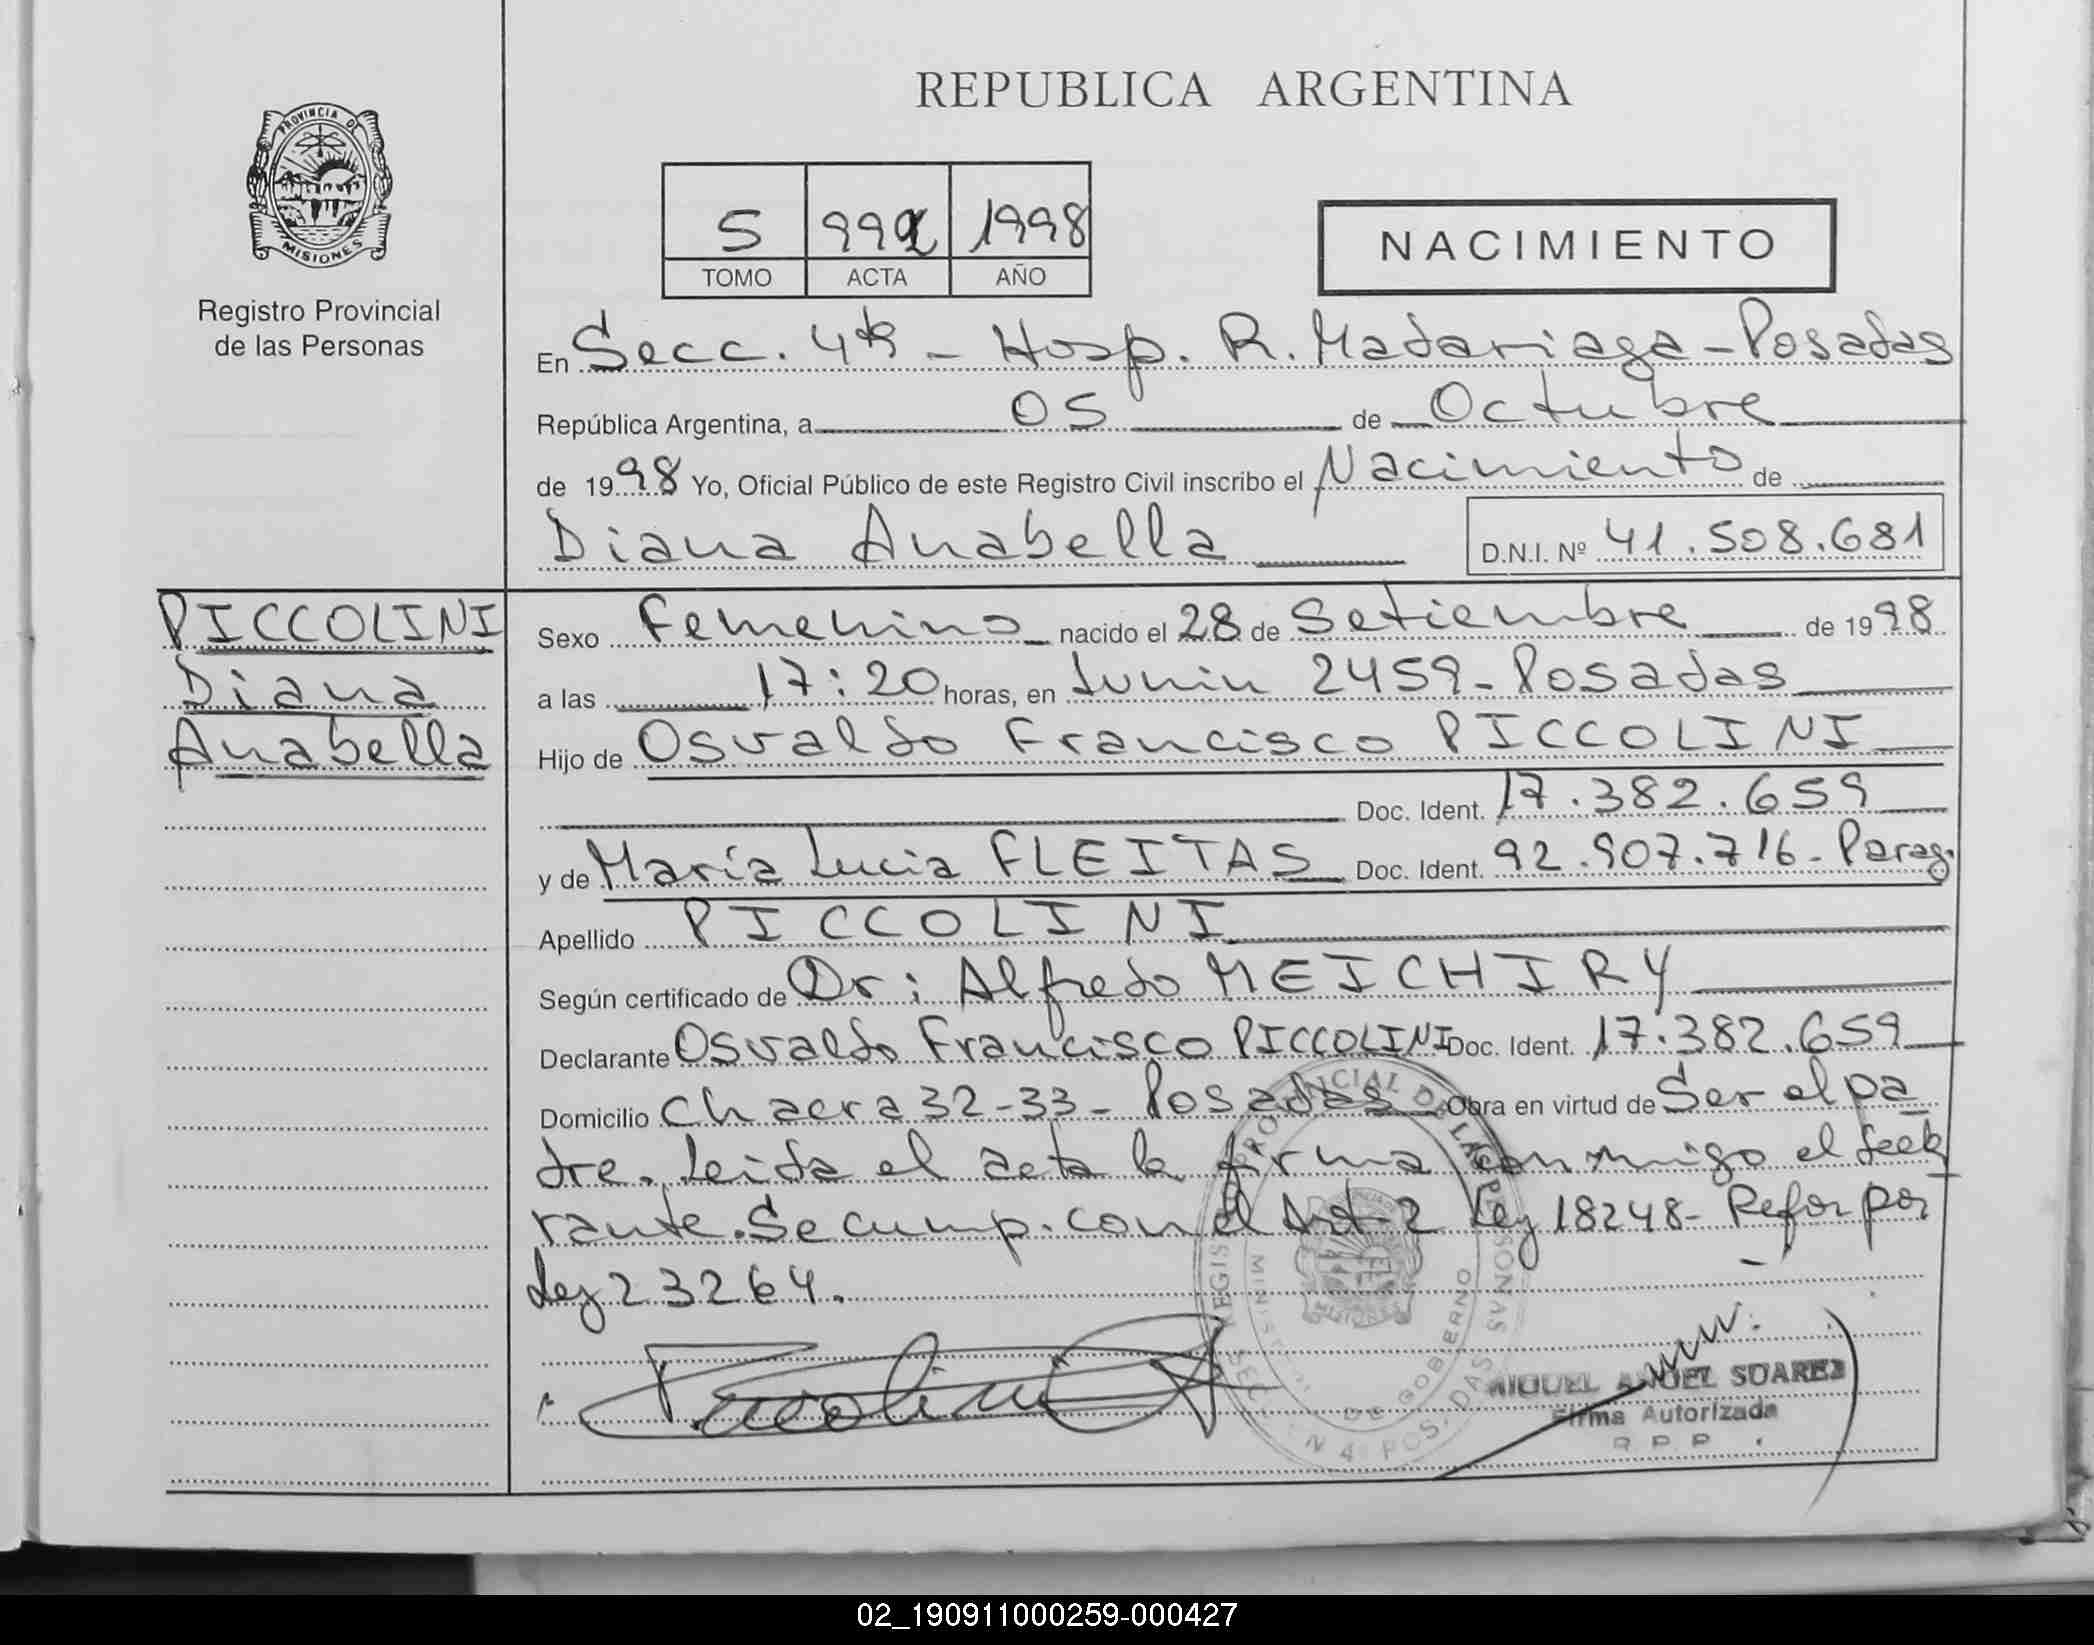 REPUBLICA ARGENTINA
PROVINCIA DE
MISIONES
Registro Provincial
de las Personas
5 1998
TOMO ACTA AÑO
NACIMIENTO
En Secc. 4ta - Hosp. R. Madariaga - Posadas
República Argentina, a 05 de Octubre
de 1998 Yo, Oficial Público de este Registro Civil inscribo el Nacimiento de
Diana Anabella D.N.I. Nº 41.508.681
PICCOLINI
Diana
Anabella
Sexo Femenino nacido el 28 de Setiembre de 1998
a las 17:20 horas, en Junin 2459 - Posadas
Hijo de Osvaldo Francisco PICCOLINI
Doc. Ident. 17.382.659
y de María Lucia FLEITAS Doc. Ident. 92.907.716 - Parag.
Apellido PICCOLINI
Según certificado de Dr: Alfredo MEICHIRY
Declarante Osvaldo Francisco PICCOLINI Doc. Ident. 17.382.659
Domicilio Chacra 32-33 - Posadas Obra en virtud de Ser el pa
dre. Leida el acta la firma conmigo el decla
rante. Se cump. con el Art. 2 Ley 18248 - Refor por
Ley 23264.
Piccolini
MIGUEL ANGEL SUAREZ
Firma Autorizada
R.P.P.
02_190911000259-000427